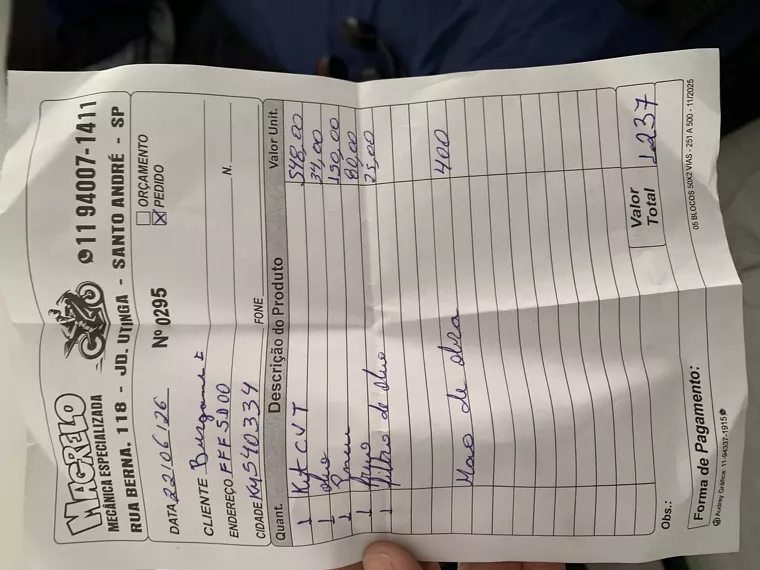 MAGRELO
MECÂNICA ESPECIALIZADA
11 94007-1411
RUA BERNA. 118 - JD. UTINGA - SANTO ANDRÉ - SP
DATA 22/06/26 Nº 0295
ORÇAMENTO
PEDIDO
CLIENTE
ENDEREÇO FFF5D00 N.
CIDADE KM540334 FONE
Quant. Descrição do Produto Valor Unit.
1 Kit CVT 548,00
1 34,00
1 Pneu 150,00
1 80,00
1 filtro de óleo 25,00
Mao de obra 400
Valor Total 1237
Obs.:
Forma de Pagamento:
Audrey Gráfica: 11-94337-1915
05 BLOCOS 50X2 VIAS - 251 A 500 - 11/2025